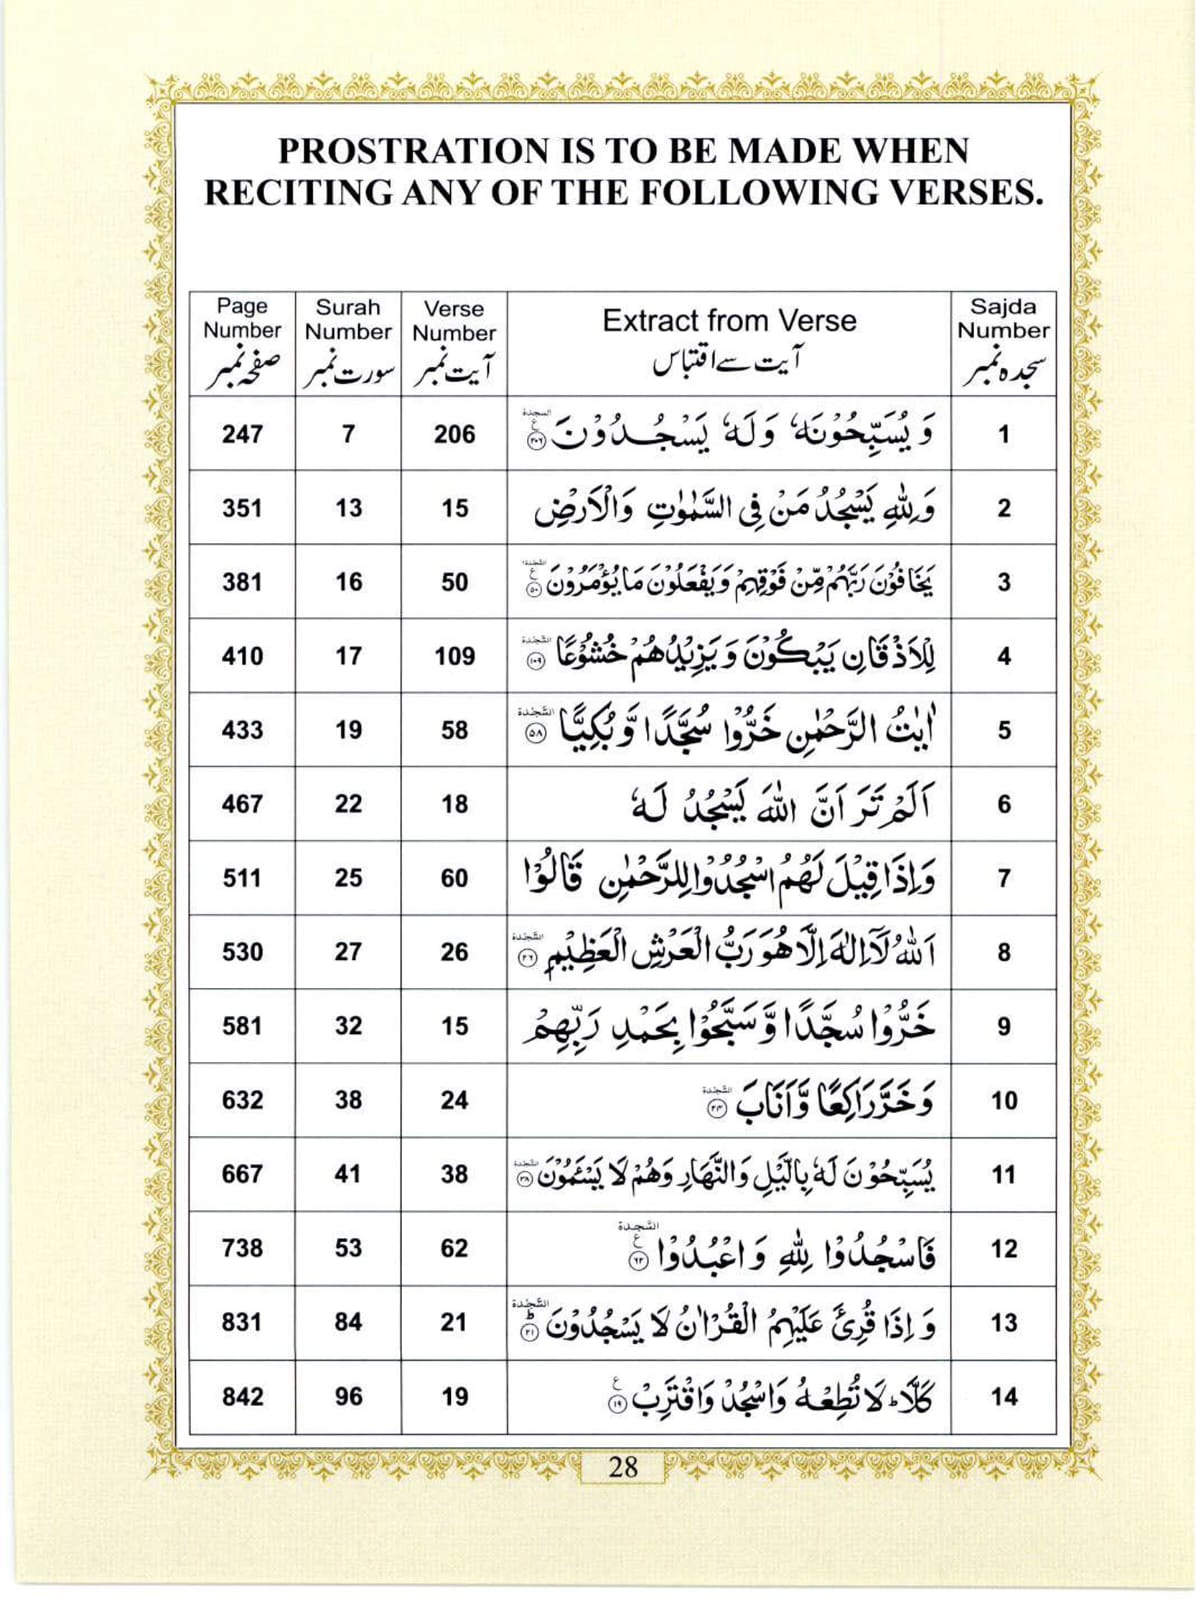 PROSTRATION IS TO BE MADE WHEN
RECITING ANY OF THE FOLLOWING VERSES.
Page Number صفحہ نمبر | Surah Number سورت نمبر | Verse Number آیت نمبر | Extract from Verse آیت سے اقتباس | Sajda Number سجدہ نمبر
247 | 7 | 206 | وَيُسَبِّحُوْنَهٗ وَلَهٗ يَسْجُدُوْنَ ۝۲۰۶ ع السجدة | 1
351 | 13 | 15 | وَلِلّٰهِ يَسْجُدُ مَنْ فِى السَّمٰوٰتِ وَالْاَرْضِ | 2
381 | 16 | 50 | يَخَافُوْنَ رَبَّهُمْ مِّنْ فَوْقِهِمْ وَيَفْعَلُوْنَ مَا يُؤْمَرُوْنَ ۝۵۰ ع السَّجْدَة | 3
410 | 17 | 109 | لِلْاَذْقَانِ يَبْكُوْنَ وَيَزِيْدُهُمْ خُشُوْعًا ۝۱۰۹ السَّجْدَة | 4
433 | 19 | 58 | اٰيٰتُ الرَّحْمٰنِ خَرُّوْا سُجَّدًا وَّبُكِيًّا ۝۵۸ السَّجْدَة | 5
467 | 22 | 18 | اَلَمْ تَرَ اَنَّ اللّٰهَ يَسْجُدُ لَهٗ | 6
511 | 25 | 60 | وَاِذَا قِيْلَ لَهُمُ اسْجُدُوْا لِلرَّحْمٰنِ قَالُوْا | 7
530 | 27 | 26 | اَللّٰهُ لَاۤ اِلٰهَ اِلَّا هُوَ رَبُّ الْعَرْشِ الْعَظِيْمِ ۝۲۶ السَّجْدَة | 8
581 | 32 | 15 | خَرُّوْا سُجَّدًا وَّسَبَّحُوْا بِحَمْدِ رَبِّهِمْ | 9
632 | 38 | 24 | وَخَرَّ رَاكِعًا وَّاَنَابَ ۝۲۴ السَّجْدَة | 10
667 | 41 | 38 | يُسَبِّحُوْنَ لَهٗ بِالَّيْلِ وَالنَّهَارِ وَهُمْ لَا يَسْـَٔمُوْنَ ۝۳۸ السَّجْدَة | 11
738 | 53 | 62 | فَاسْجُدُوْا لِلّٰهِ وَاعْبُدُوْا ۝۶۲ ع السَّجْدَة | 12
831 | 84 | 21 | وَاِذَا قُرِئَ عَلَيْهِمُ الْقُرْاٰنُ لَا يَسْجُدُوْنَ ۝۲۱ ط السَّجْدَة | 13
842 | 96 | 19 | كَلَّا ؕ لَا تُطِعْهُ وَاسْجُدْ وَاقْتَرِبْ ۝۱۹ ع | 14
28